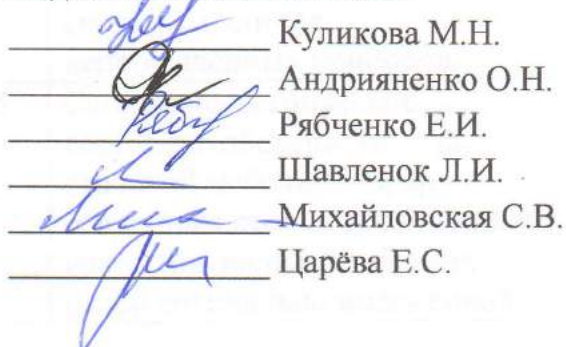 Куликова М.Н.
Андрияненко О.Н.
Рябченко Е.И.
Шавленок Л.И.
Михайловская С.В.
Царёва Е.С.